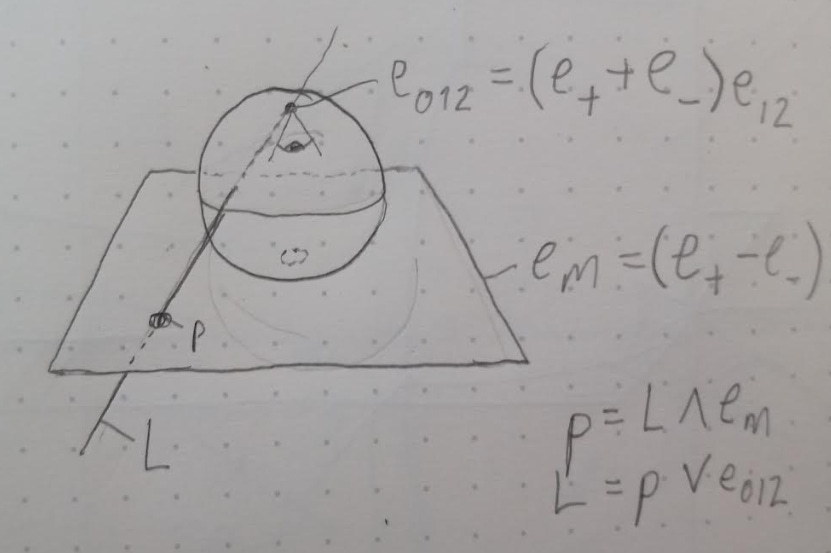 e₀₁₂ = (e₊ + e₋)e₁₂
e_M = (e₊ - e₋)
p
L
p = L ∧ e_M
L = p ∨ e₀₁₂